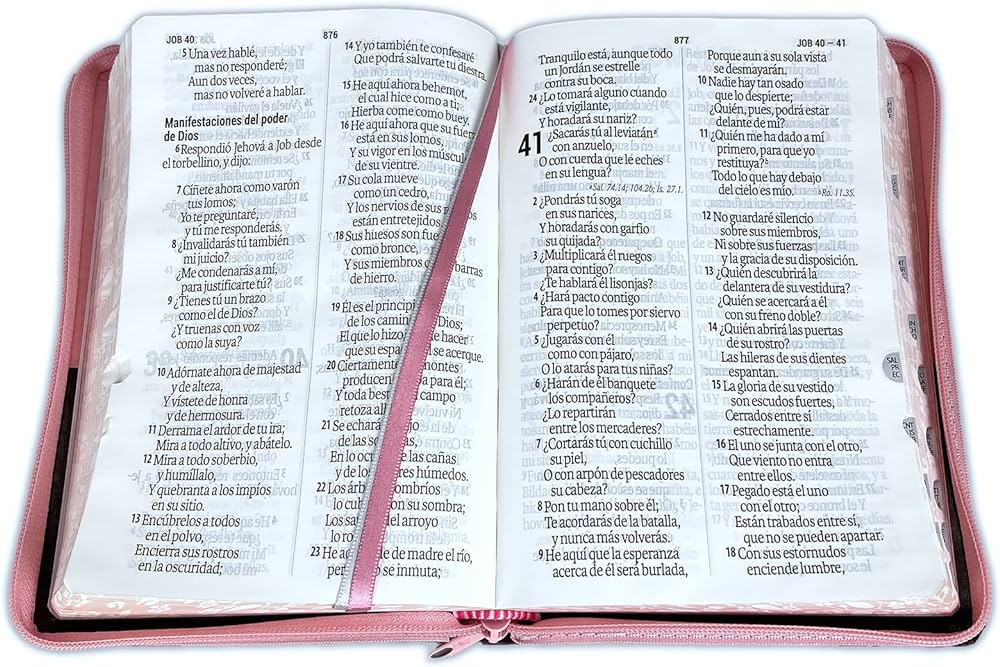 JOB 40
876
5 Una vez hablé,
mas no responderé;
Aun dos veces,
mas no volveré a hablar.
Manifestaciones del poder
de Dios
6 Respondió Jehová a Job desde
el torbellino, y dijo:
7 Cíñete ahora como varón
tus lomos;
Yo te preguntaré,
y tú me responderás.
8 ¿Invalidarás tú también
mi juicio?
¿Me condenarás a mí,
para justificarte tú?
9 ¿Tienes tú un brazo
como el de Dios?
¿Y truenas con voz
como la suya?
10 Adórnate ahora de majestad
y de alteza,
Y vístete de honra
y de hermosura.
11 Derrama el ardor de tu ira;
Mira a todo altivo, y abátelo.
12 Mira a todo soberbio,
y humíllalo,
Y quebranta a los impíos
en su sitio.
13 Encúbrelos a todos
en el polvo,
Encierra sus rostros
en la oscuridad;
14 Y yo también te confesaré
Que podrá salvarte tu diestra.
15 He aquí ahora behemot,
el cual hice como a ti;
Hierba come como buey.
16 He aquí ahora que su fuer
está en sus lomos,
Y su vigor en los múscul
de su vientre.
17 Su cola mueve
como un cedro,
Y los nervios de sus
están entretejidos
18 Sus huesos son fue
como bronce,
Y sus miembros barras
de hierro.
19 Él es el principi
de los camin Dios;
El que lo hizo hacer
que su espa se acerque.
20 Ciertamente montes
producen para él;
Y toda best campo
retoza all
21 Se echará jo
de las so as,
En lo oc e las cañas
y de lo es húmedos.
22 Los árb ombríos
lo cu on su sombra;
Los sa del arroyo
lo ro
23 He aq le de madre el río,
pe o se inmuta;
877
JOB 40 – 41
Tranquilo está, aunque todo
un Jordán se estrelle
contra su boca.
24 ¿Lo tomará alguno cuando
está vigilante,
Y horadará su nariz?
41 ¿Sacarás tú al leviatánᵃ
con anzuelo,
O con cuerda que le eches
en su lengua?
ᵃ Sal. 74.14; 104.26; Is. 27.1.
2 ¿Pondrás tú soga
en sus narices,
Y horadarás con garfio
su quijada?
3 ¿Multiplicará él ruegos
para contigo?
¿Te hablará él lisonjas?
4 ¿Hará pacto contigo
Para que lo tomes por siervo
perpetuo?
5 ¿Jugarás con él
como con pájaro,
O lo atarás para tus niñas?
6 ¿Harán de él banquete
los compañeros?
¿Lo repartirán
entre los mercaderes?
7 ¿Cortarás tú con cuchillo
su piel,
O con arpón de pescadores
su cabeza?
8 Pon tu mano sobre él;
Te acordarás de la batalla,
y nunca más volverás.
9 He aquí que la esperanza
acerca de él será burlada,
Porque aun a su sola vista
se desmayarán.
10 Nadie hay tan osado
que lo despierte;
¿Quién, pues, podrá estar
delante de mí?
11 ¿Quién me ha dado a mí
primero, para que yo
restituya?ᵇ
Todo lo que hay debajo
del cielo es mío. ᵇ Ro. 11.35.
12 No guardaré silencio
sobre sus miembros,
Ni sobre sus fuerzas
y la gracia de su disposición.
13 ¿Quién descubrirá la
delantera de su vestidura?
¿Quién se acercará a él
con su freno doble?
14 ¿Quién abrirá las puertas
de su rostro?
Las hileras de sus dientes
espantan.
15 La gloria de su vestido
son escudos fuertes,
Cerrados entre sí
estrechamente.
16 El uno se junta con el otro,
Que viento no entra
entre ellos.
17 Pegado está el uno
con el otro;
Están trabados entre sí,
que no se pueden apartar.
18 Con sus estornudos
enciende lumbre,
SAL
PR
EC